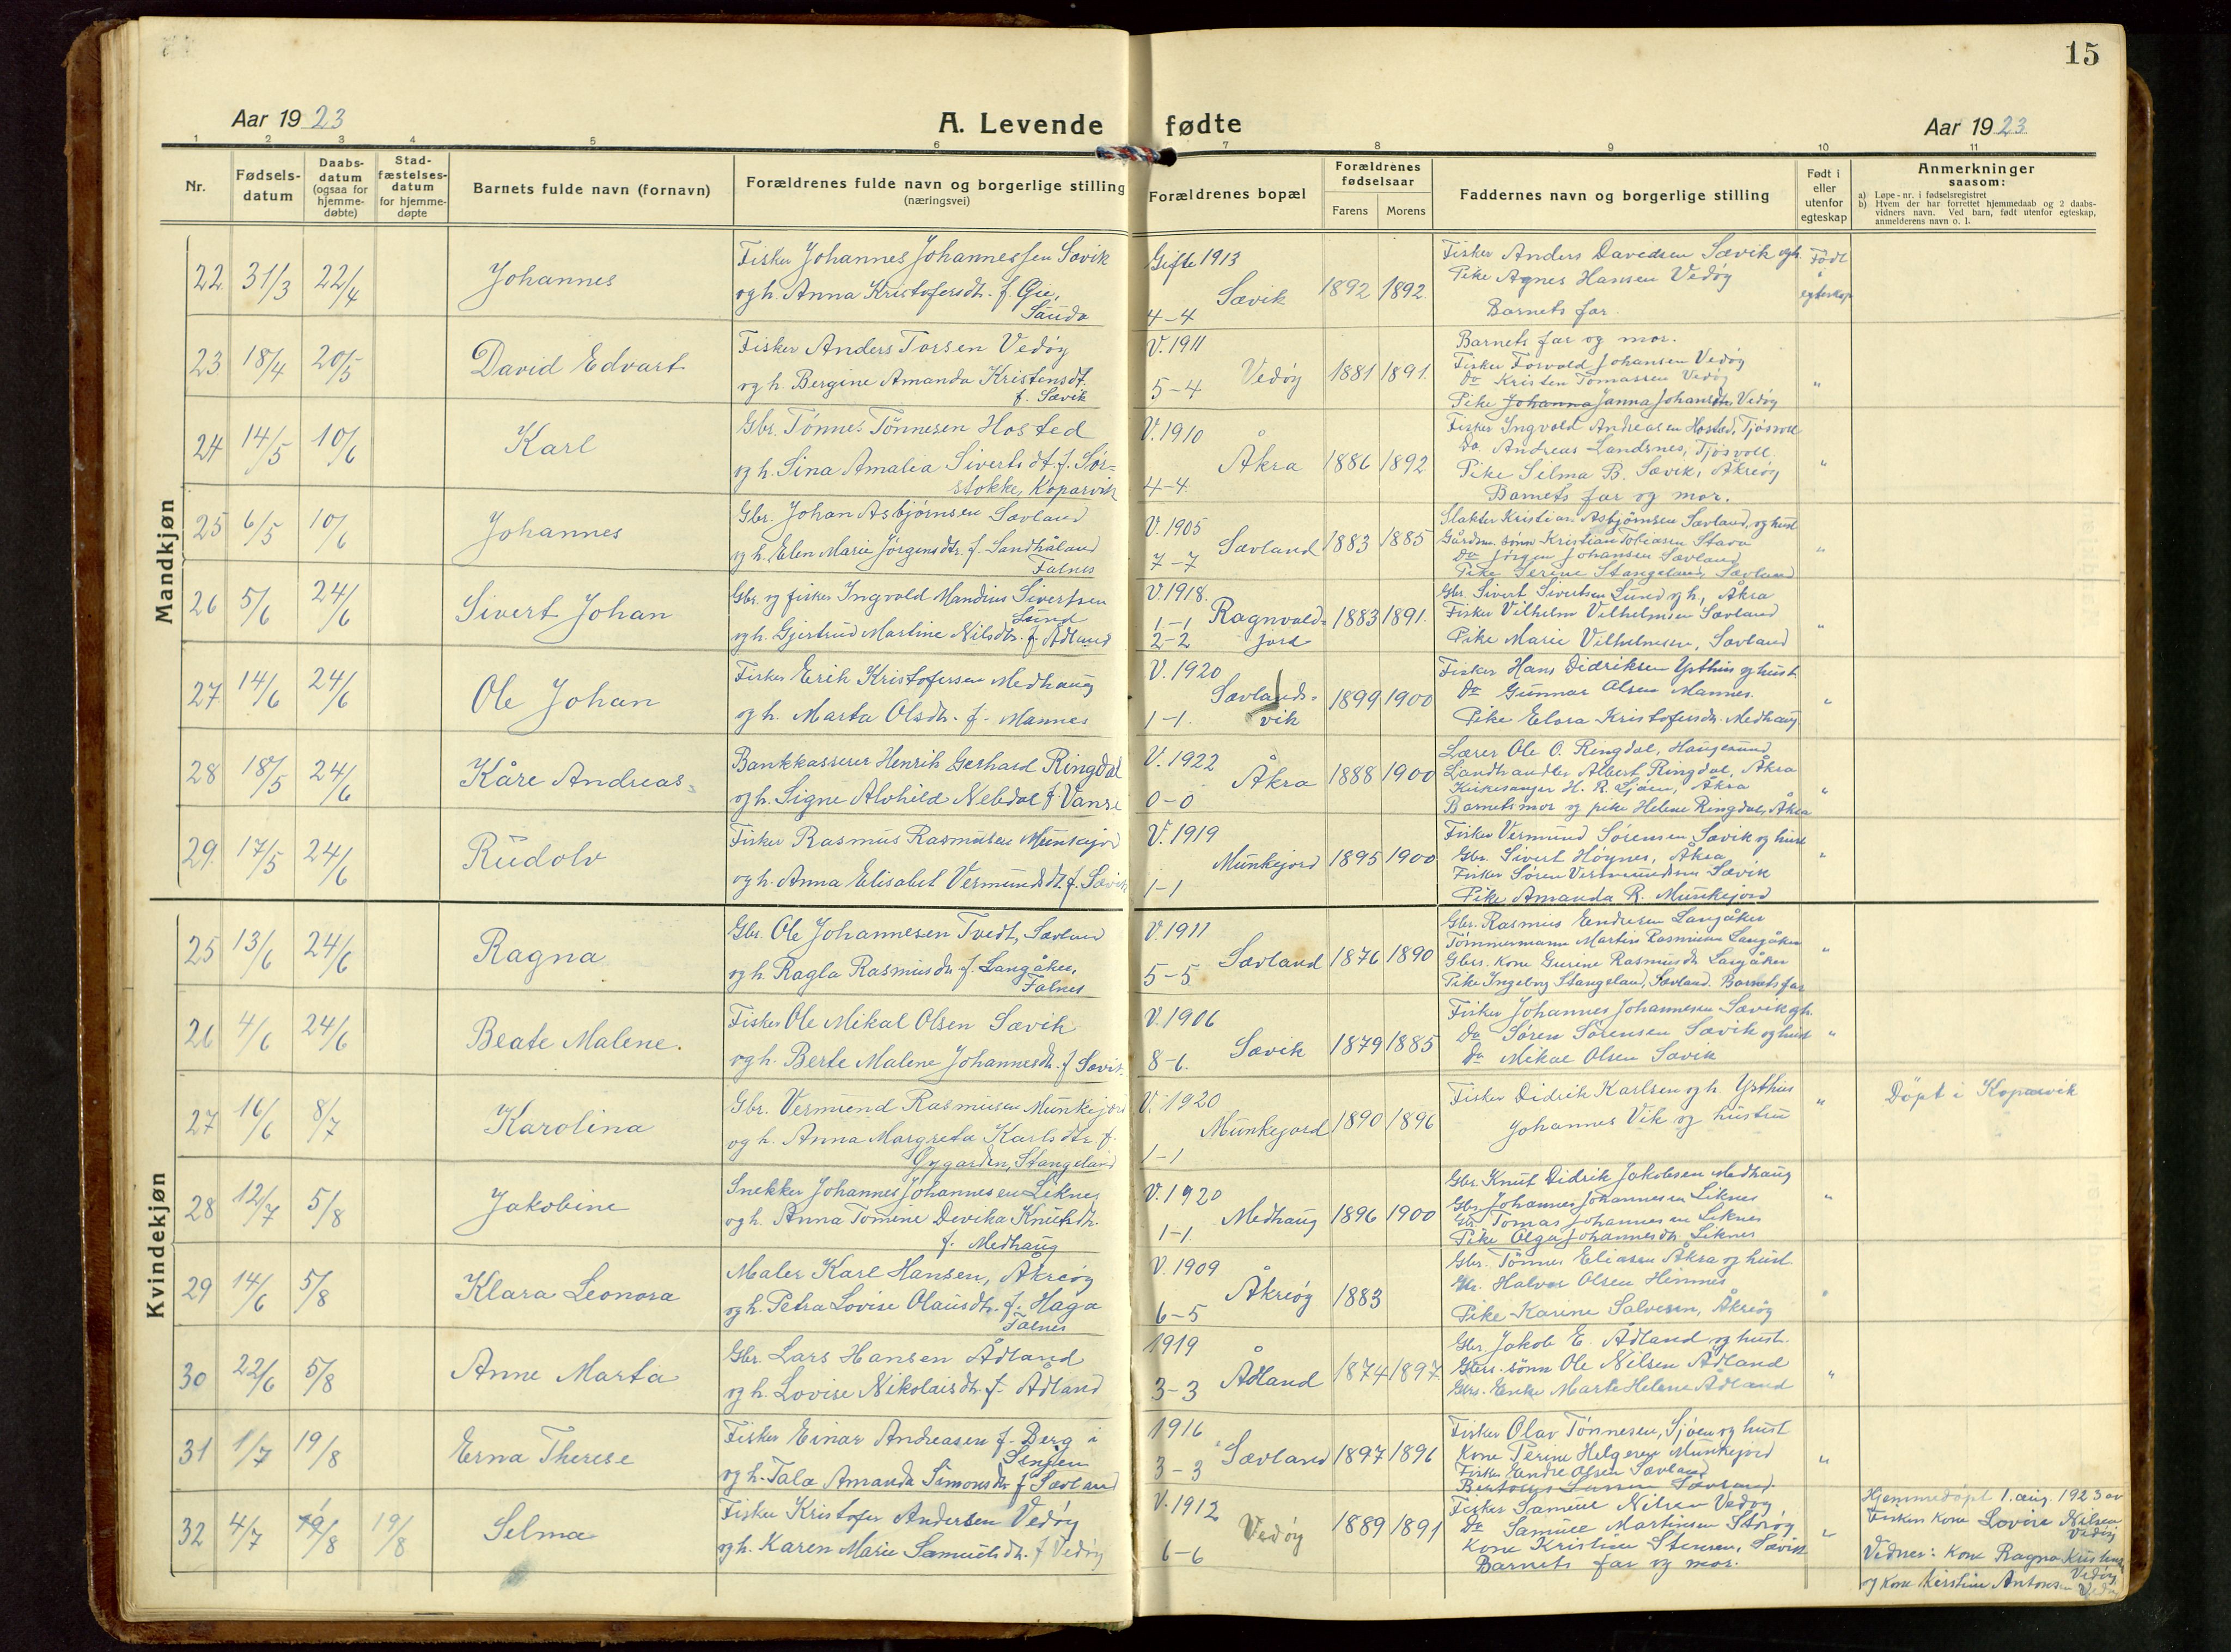 15
Aar 1923
A. Levende fødte
Aar 1923
1 2 3 4 5 6 7 8 9 10 11
Nr.
Fødsels-
datum
Daabs-
datum
(ogsaa for
hjemme-
døbte)
Stad-
fæstelses-
datum
for hjemme-
døpte
Barnets fulde navn (fornavn)
Forældrenes fulde navn og borgerlige stilling
(næringsvei)
Forældrenes bopæl
Forældrenes
fødselsaar
Farens Morens
Faddernes navn og borgerlige stilling
Født i
eller
utenfor
egteskap
Anmerkninger
saasom:
a) Løpe-nr. i fødselsregistret
b) Hvem der har forrettet hjemmedaab og 2 daabs-
vidners navn. Ved barn, født utenfor egteskap,
anmelderens navn o. l.
Mandkjøn
22 31/3 22/4 Johannes
Fisker Johannes Johannessen Sævik
og h. Anna Kristofersdt. f. Gje,
Sauda
Gifte 1913
4-4 Sævik 1892 1892
Fisker Anders Davidsen Sævik og h.
Pike Agnes Hansen Vedøy
Barnets far
Født
i
egteskap
23 18/4 20/5 David Edvart
Fisker Anders Torsen Vedøy
og h. Bergine Amanda Kristensdt.
f. Sævik
V. 1911
5-4 Vedøy 1881 1891.
Barnets far og mor.
Fisker Torvald Johansen Vedøy
Do Kristen Tomassen Vedøy
Pike Johanna Janna Johansdtr. Vedøy
"
24 14/5 10/6 Karl
Gbr. Tönnes Tönnesen Hosted
og h. Sina Amalia Sivertsdt. f. Sör-
stokke, Koparvik
V. 1910
4-4 Åkra 1886 1892
Fisker Ingvald Andreasen Hosted, Tjösvoll
Do Andreas Landsnes, Tjösvoll.
Pike Selma B. Sævik, Åkreøy
Barnets far og mor.
"
25 6/5 10/6 Johannes
Gbr. Johan Asbjørnsen Sævland
og h. Elen Marie Jörgensdtr. f. Sandhåland
Falnes
V. 1905
7-7 Sævland 1883 1885
Slakter Kristian Asbjørnsen Sævland, og hust
Gårdm. sønn Kristian Tobiasen Stava
Do Jörgen Johansen Sævland
Pike Serine Stangeland, Sævland
"
26 5/6 24/6 Sivert Johan
Gbr. og fisker Ingvald Mandius Sivertsen
Lund
og h. Gjertrud Martine Nilsdtr. f. Ådland
V. 1918.
1-1
2-2 Ragnvald-
jord 1883 1891.
Gbr. Sivert Sivertsen Lund og h, Åkra
Fisker Vilhelm Vilhelmsen Sævland
Pike Marie Vilhelmsen, Sævland
"
27 14/6 24/6 Ole Johan
Fisker Erik Kristofersen Medhaug
og h. Marta Olsdtr. f. Mannes
V. 1920
1-1. Sævlands-
vik 1899 1900
Fisker Hans Didriksen Ysthus og hust.
Do Gunnar Olsen Mannes.
Pike Elora Kristofersdtr. Medhaug
"
28 18/5 24/6 Kåre Andreas
Bankkasserer Henrik Gerhard Ringdal
og h. Signe Alvhild Nebdal f. Vanse
V. 1922
0-0 Åkra 1888 1900
Lærer Ole O. Ringdal, Haugesund
Landhandler Albert Ringdal, Åkra
Kirkesanger H. R. Sjøen, Åkra
Barnets mor og pike Helene Ringdal, Åkra
"
29 17/5 24/6 Rudolv
Fisker Rasmus Rasmussen Munkejord
og h. Anna Elisabet Vermundsdt. f. Sævik
V. 1919
1-1 Munkejord 1895 1900
Fisker Vermund Sörensen Sævik og hust
Gbr. Sivert Höynes, Åkra
Fisker Sören Vermundsen Sævik
Pike Amanda R. Munkejord
"
Kvindekjøn
25 13/6 24/6 Ragna
Gbr. Ole Johannesen Tvedt, Sævland
og h. Ragla Rasmusdtr. f. Langåker,
Falnes
V. 1911
5-5 Sævland 1876 1890
Gbr. Rasmus Endresen Langåker
Tömmermann Martin Rasmussen Langåker
Gbrs. kone Gurine Rasmusdtr Langåker
Pike Ingeborg Stangeland, Sævland. Barnets far
"
26 4/6 24/6 Beate Malene.
Fisker Ole Mikal Olsen Sævik
og h. Berte Malene Johannesdtr. f. Sævik
V. 1906
8-6. Sævik 1879 1885
Fisker Johannes Johannesen Sævik og h.
Do Sören Sörensen Sævik og hust
Do Mikal Olsen Sævik
"
27 16/6 8/7 Karolina
Gbr. Vermund Rasmussen Munkejord
og h. Anna Margreta Karlsdtr. f.
Öygarden, Stangeland
V. 1920
1-1 Munkejord 1890 1896
Fisker Didrik Karlsen og h. Ysthus
Johannes Vik og hustru
"
Döpt i Kopervik
28 12/7 5/8 Jakobine
Snekker Johannes Johannesen Liknes
og h. Anna Tomine Devika Knutsdtr.
f. Medhaug
V. 1920
1-1. Medhaug 1896 1900
Gbr. Knut Didrik Jakobsen Medhaug
Gbr. Johannes Johannesen Liknes
Gbr. Tomas Johannesen Liknes
Pike Olga Johannesdtr Liknes
"
29 14/6 5/8 Klara Leonora
Maler Karl Hansen, Åkreøy
og h. Petra Lovise Olausdtr. f. Haga
Falnes
V. 1909
6-5 Åkreøy 1883
Gbr. Tönnes Eliasen Åkra og hust.
Gbr. Halvor Olsen Hemnes
Pike Karine Salvesen, Åkreøy
"
30 22/6 5/8 Anne Marta
Gbr. Lars Hansen Ådland
og h. Lovise Nikolaisdtr. f. Ådland
1919
3-3 Ådland 1874 1897.
Gbr. Jakob E. Ådland og hust.
Gbrs. sönn Ole Nilsen Ådland
Gbrs. Enke Marte Helene Ådland
"
31 1/7 19/8 Erna Therese
Fisker Einar Andreasen f. Berg i
Senjen
og h. Tala Amanda Simonsdtr f. Sævland
1916
3-3 Sævland 1897 1896
Fisker Olav Tönnesen, Sjöen og hust
Kone Perine Helgesen Munkejord
Fisker Endre Olsen Sævland
"
32 4/7 1/8 19/8 Selma
Fisker Kristofer Andersen Vedøy
og h. Karen Marie Samuelsdtr. f. Vedøy
V. 1912
6-6 Vedøy 1889 1891
Fisker Samuel Nilsen Vedøy,
Do Samuel Martinsen Storøy
Kone Kristine Stensen, Sævik
Barnets far og mor.
"
Hjemmedöpt 1. aug. 1923 av
Fiskers kone Lovise Nilsen
Vedøy
Vidner: kone Ragna Kristensen
Vedøy
og kone Kirstine Antonsen Vedøy